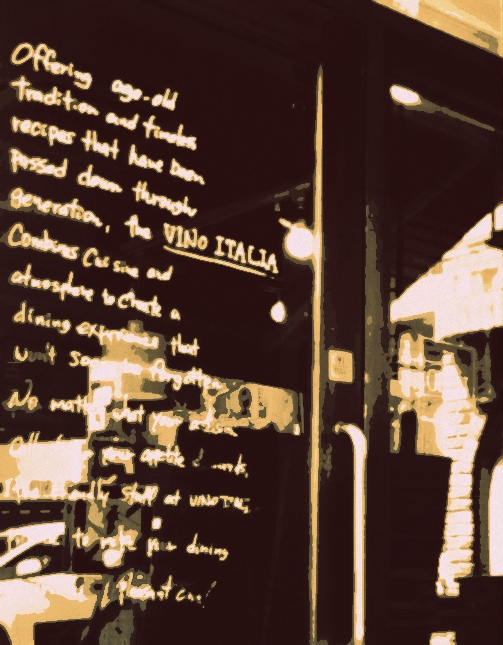 Offering age-old
tradition and timeless
recipes that have been
passed down through
generation, the VINO ITALIA
Combines Cuisine and
atmosphere to create a
dining experience that
won't soon be forgotten
No matter what your
your appetite
friendly staff at VINO
to make your dining
pleasant